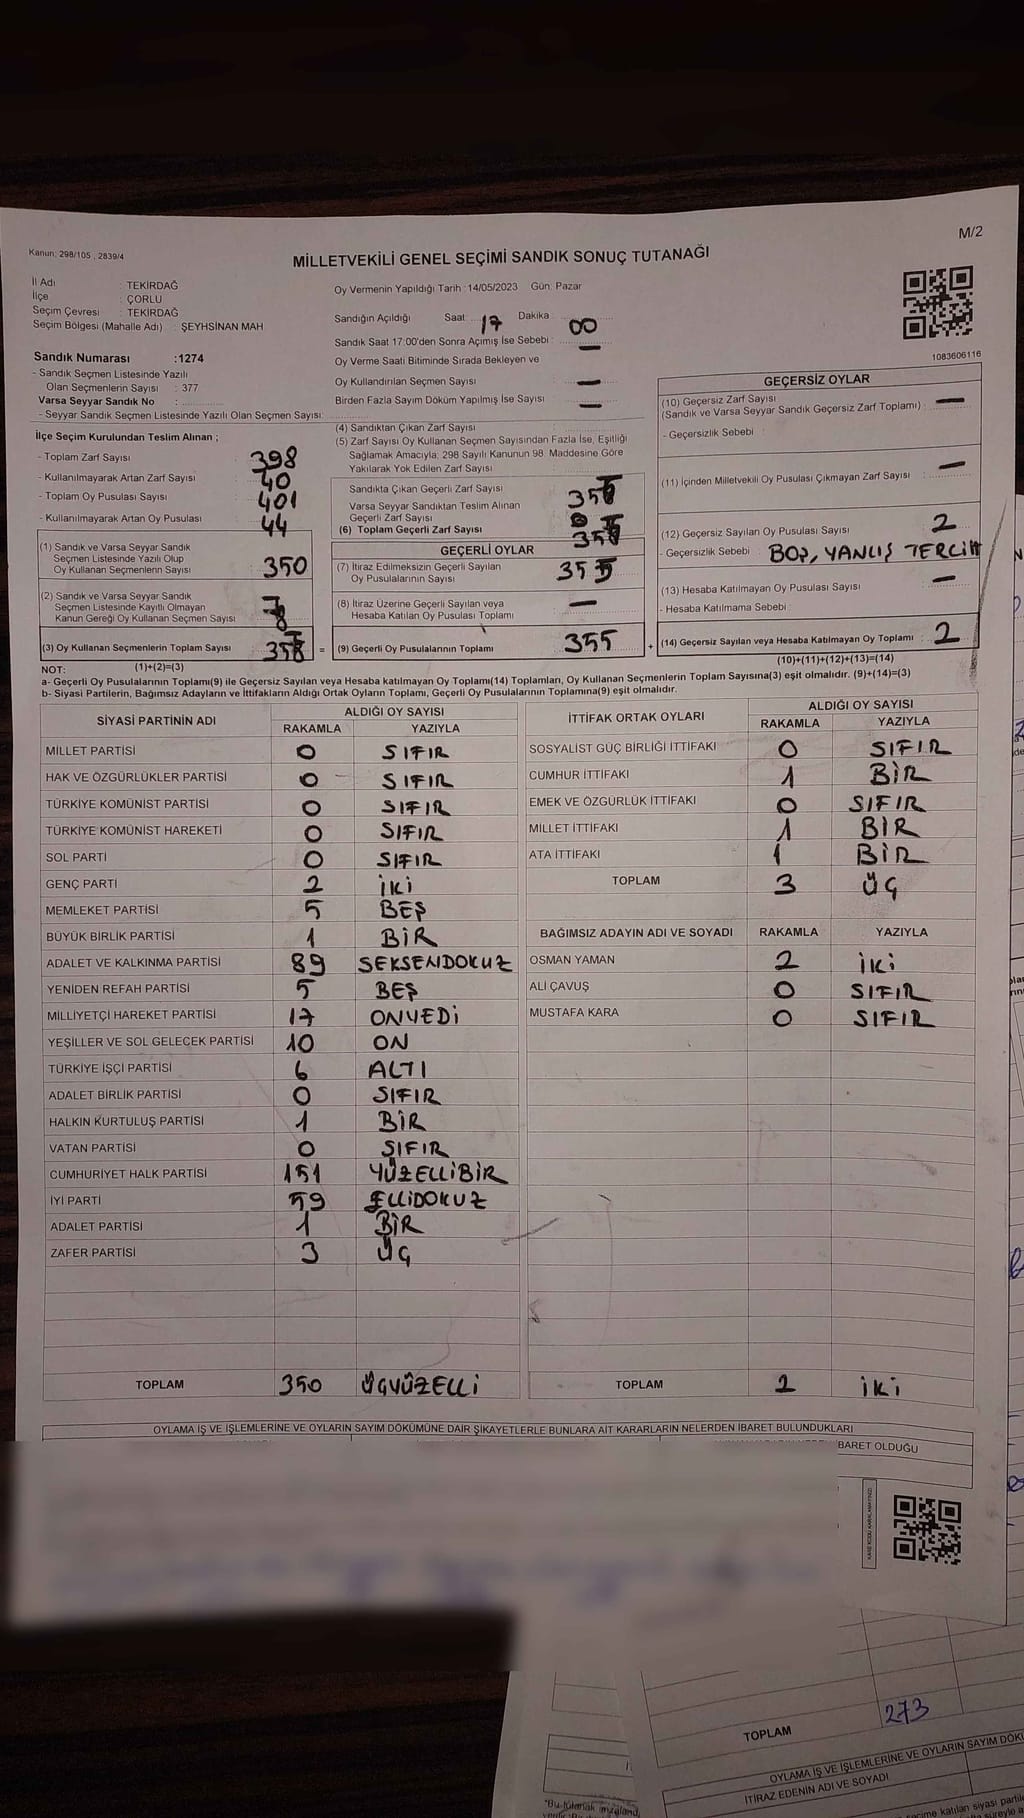 M/2
Kanun: 298/105 , 2839/4
MİLLETVEKİLİ GENEL SEÇİMİ SANDIK SONUÇ TUTANAĞI
İl Adı : TEKİRDAĞ
İlçe : ÇORLU
Seçim Çevresi : TEKİRDAĞ
Seçim Bölgesi (Mahalle Adı) : ŞEYHSİNAN MAH
Sandık Numarası :1274
- Sandık Seçmen Listesinde Yazılı
Olan Seçmenlerin Sayısı : 377
Varsa Seyyar Sandık No :
- Seyyar Sandık Seçmen Listesinde Yazılı Olan Seçmen Sayısı:
İlçe Seçim Kurulundan Teslim Alınan ;
- Toplam Zarf Sayısı 398
- Kullanılmayarak Artan Zarf Sayısı 40
- Toplam Oy Pusulası Sayısı 401
- Kullanılmayarak Artan Oy Pusulası 44
(1) Sandık ve Varsa Seyyar Sandık
Seçmen Listesinde Yazılı Olup
Oy Kullanan Seçmenlerin Sayısı 350
(2) Sandık ve Varsa Seyyar Sandık
Seçmen Listesinde Kayıtlı Olmayan
Kanun Gereği Oy Kullanan Seçmen Sayısı
(3) Oy Kullanan Seçmenlerin Toplam Sayısı =
(1)+(2)=(3)
Oy Vermenin Yapıldığı Tarih :14/05/2023 Gün: Pazar
Sandığın Açıldığı Saat: 17 Dakika : 00
Sandık Saat 17:00'den Sonra Açımış İse Sebebi : —
Oy Verme Saati Bitiminde Sırada Bekleyen ve
Oy Kullandırılan Seçmen Sayısı —
Birden Fazla Sayım Döküm Yapılmış İse Sayısı —
(4) Sandıktan Çıkan Zarf Sayısı
(5) Zarf Sayısı Oy Kullanan Seçmen Sayısından Fazla İse, Eşitliği
Sağlamak Amacıyla; 298 Sayılı Kanunun 98. Maddesine Göre
Yakılarak Yok Edilen Zarf Sayısı
Sandıkta Çıkan Geçerli Zarf Sayısı
Varsa Seyyar Sandıktan Teslim Alınan
Geçerli Zarf Sayısı 0
(6) Toplam Geçerli Zarf Sayısı
GEÇERLİ OYLAR
(7) İtiraz Edilmeksizin Geçerli Sayılan
Oy Pusulalarının Sayısı 355
(8) İtiraz Üzerine Geçerli Sayılan veya
Hesaba Katılan Oy Pusulası Toplamı —
(9) Geçerli Oy Pusulalarının Toplamı 355 +
1083606116
GEÇERSİZ OYLAR
(10) Geçersiz Zarf Sayısı
(Sandık ve Varsa Seyyar Sandık Geçersiz Zarf Toplamı) : —
- Geçersizlik Sebebi :
(11) İçinden Milletvekili Oy Pusulası Çıkmayan Zarf Sayısı : —
(12) Geçersiz Sayılan Oy Pusulası Sayısı : 2
- Geçersizlik Sebebi : BOŞ, YANLIŞ TERCİH
(13) Hesaba Katılmayan Oy Pusulası Sayısı : —
- Hesaba Katılmama Sebebi
(14) Geçersiz Sayılan veya Hesaba Katılmayan Oy Toplamı : 2
(10)+(11)+(12)+(13)=(14)
NOT:
a- Geçerli Oy Pusulalarının Toplamı(9) ile Geçersiz Sayılan veya Hesaba katılmayan Oy Toplamı(14) Toplamları, Oy Kullanan Seçmenlerin Toplam Sayısına(3) eşit olmalıdır. (9)+(14)=(3)
b- Siyasi Partilerin, Bağımsız Adayların ve İttifakların Aldığı Ortak Oyların Toplamı, Geçerli Oy Pusulalarının Toplamına(9) eşit olmalıdır.
SİYASİ PARTİNİN ADI ALDIĞI OY SAYISI
RAKAMLA YAZIYLA
MİLLET PARTİSİ 0 SIFIR
HAK VE ÖZGÜRLÜKLER PARTİSİ 0 SIFIR
TÜRKİYE KOMÜNİST PARTİSİ 0 SIFIR
TÜRKİYE KOMÜNİST HAREKETİ 0 SIFIR
SOL PARTİ 0 SIFIR
GENÇ PARTİ 2 İKİ
MEMLEKET PARTİSİ 5 BEŞ
BÜYÜK BİRLİK PARTİSİ 1 BİR
ADALET VE KALKINMA PARTİSİ 89 SEKSENDOKUZ
YENİDEN REFAH PARTİSİ 5 BEŞ
MİLLİYETÇİ HAREKET PARTİSİ 17 ONYEDİ
YEŞİLLER VE SOL GELECEK PARTİSİ 10 ON
TÜRKİYE İŞÇİ PARTİSİ 6 ALTI
ADALET BİRLİK PARTİSİ 0 SIFIR
HALKIN KURTULUŞ PARTİSİ 1 BİR
VATAN PARTİSİ 0 SIFIR
CUMHURİYET HALK PARTİSİ 151 YÜZELLİBİR
İYİ PARTİ 59 ELLİDOKUZ
ADALET PARTİSİ 1 BİR
ZAFER PARTİSİ 3 ÜÇ
TOPLAM 350 ÜÇYÜZELLİ
İTTİFAK ORTAK OYLARI ALDIĞI OY SAYISI
RAKAMLA YAZIYLA
SOSYALİST GÜÇ BİRLİĞİ İTTİFAKI 0 SIFIR
CUMHUR İTTİFAKI 1 BİR
EMEK VE ÖZGÜRLÜK İTTİFAKI 0 SIFIR
MİLLET İTTİFAKI 1 BİR
ATA İTTİFAKI 1 BİR
TOPLAM 3 ÜÇ
BAĞIMSIZ ADAYIN ADI VE SOYADI RAKAMLA YAZIYLA
OSMAN YAMAN 2 İKİ
ALİ ÇAVUŞ 0 SIFIR
MUSTAFA KARA 0 SIFIR
TOPLAM 2 İKİ
OYLAMA İŞ VE İŞLEMLERİNE VE OYLARIN SAYIM DÖKÜMÜNE DAİR ŞİKAYETLERLE BUNLARA AİT KARARLARIN NELERDEN İBARET BULUNDUKLARI
İBARET OLDUĞU
273
TOPLAM
OYLAMA İŞ VE İŞLEMLERİNE VE OYLARIN SAYIM
İTİRAZ EDENİN ADI VE SOYADI